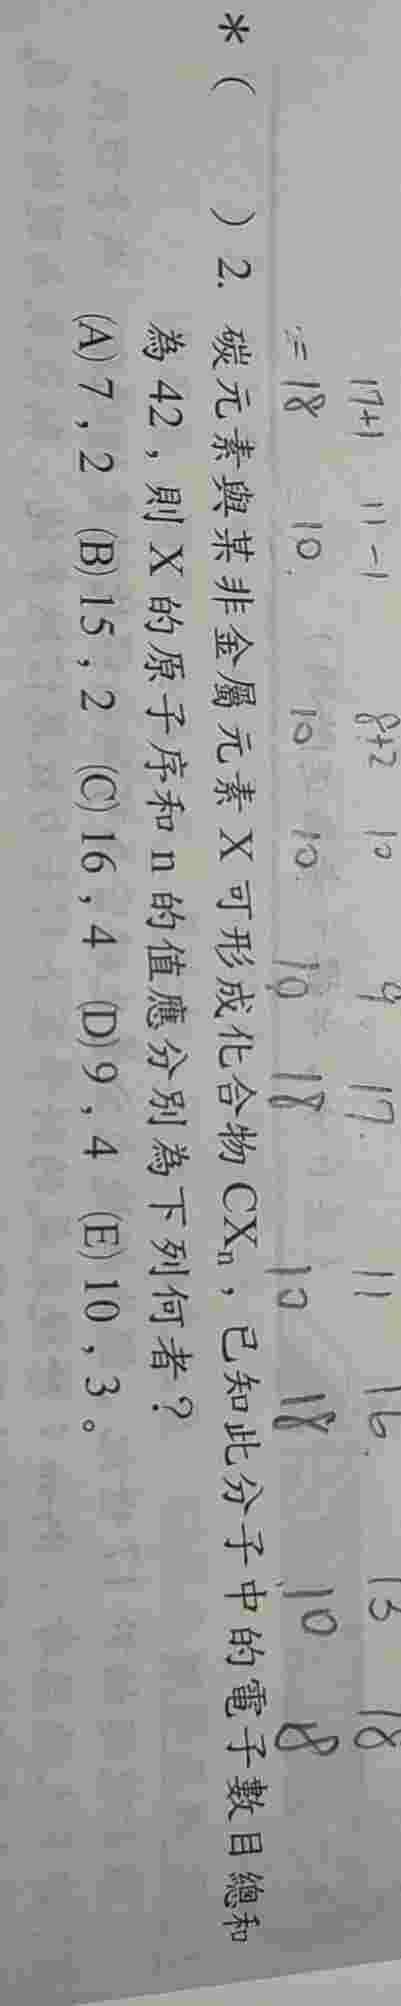 17+1 11-1 8+2 10 9 17. 11 16. 13 18
=18 10. 10 10 10 18 10 18 10 8
*（ ）2. 碳元素與某非金屬元素 X 可形成化合物 CXₙ，已知此分子中的電子數目總和
為 42，則 X 的原子序和 n 的值應分別為下列何者？
(A) 7，2 (B) 15，2 (C) 16，4 (D) 9，4 (E) 10，3。